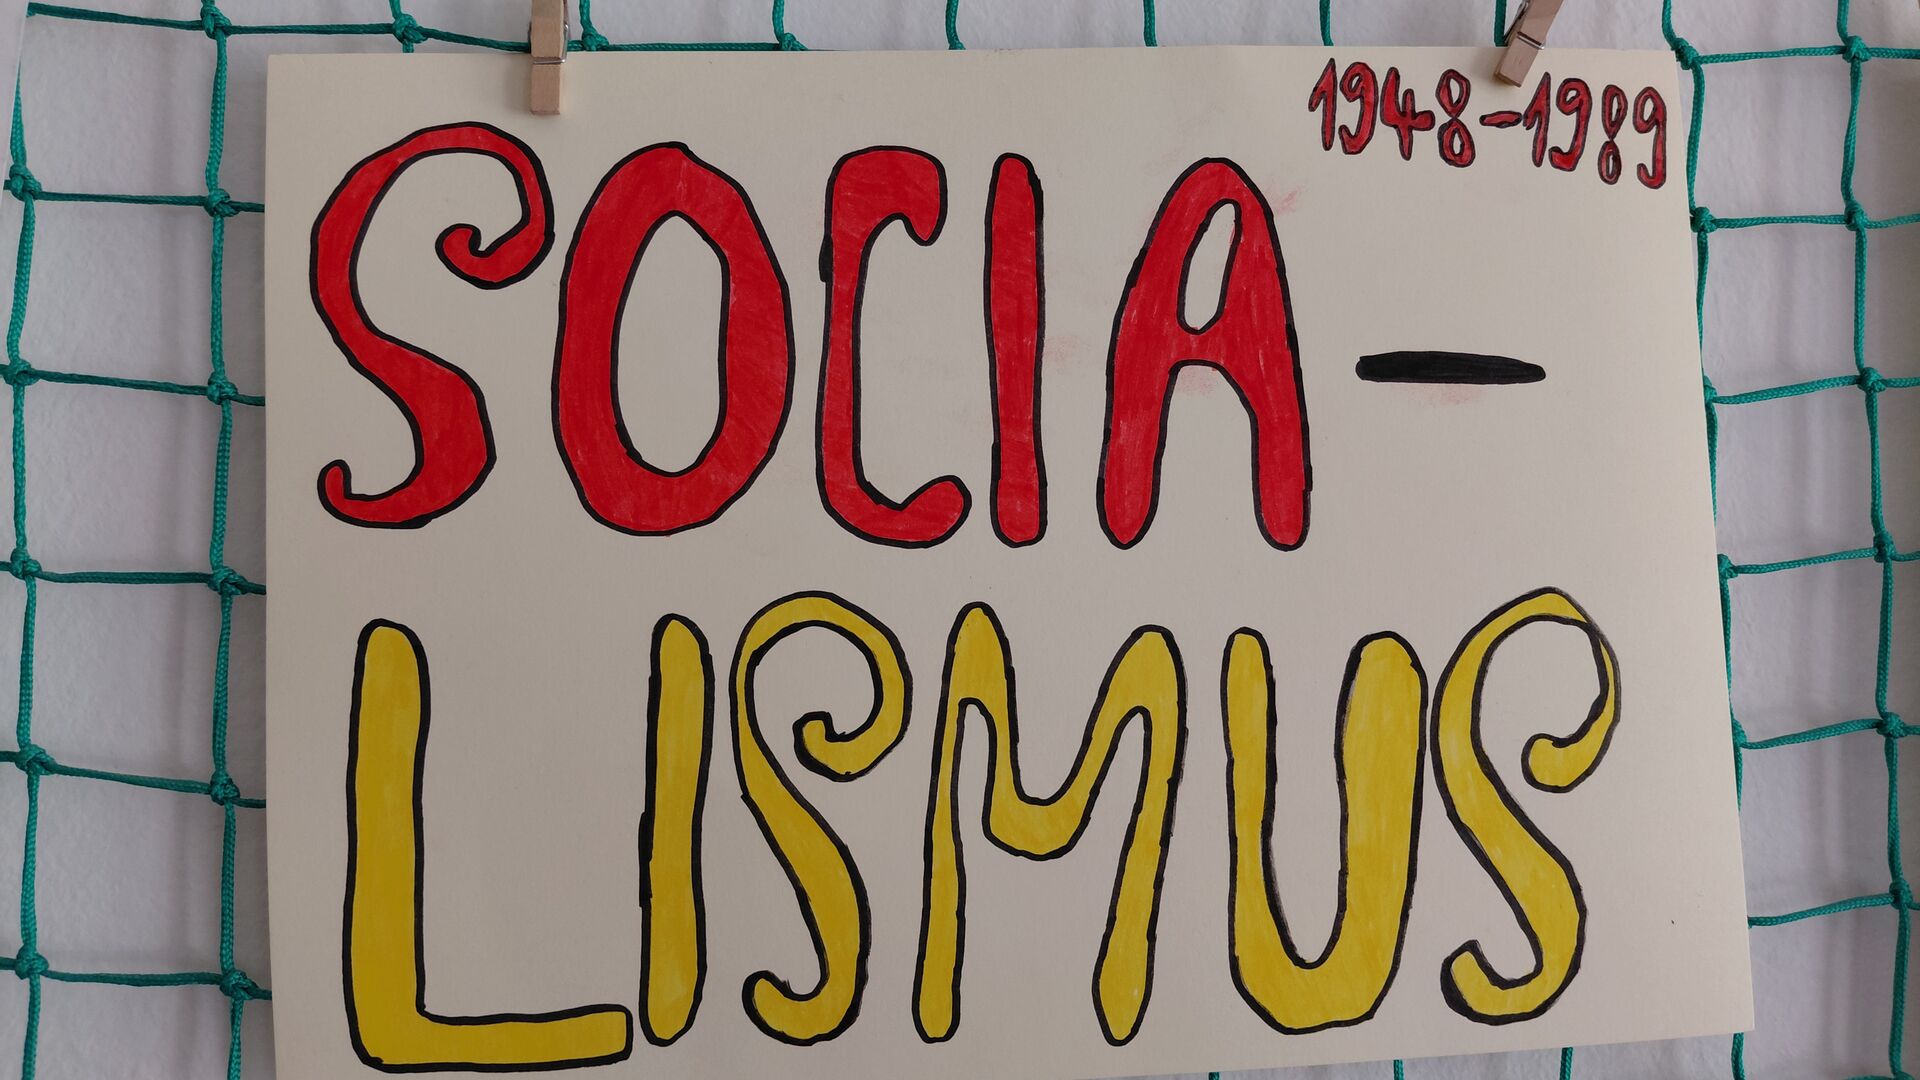 1948-1989
SOCIA-
LISMUS